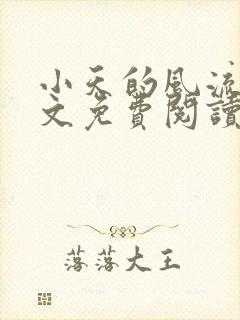 小天的風流
文免費閱讀
落落大王